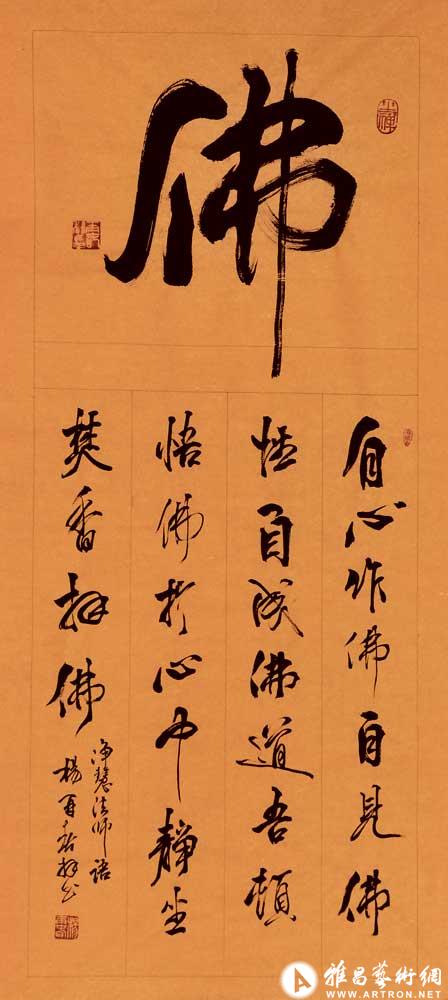 佛
自心作佛自見佛
性自成佛道吾頓
悟佛於心中靜坐
焚香拜佛
淨慧法師語
楊再春
雅昌藝術網
WWW.ARTRON.NET